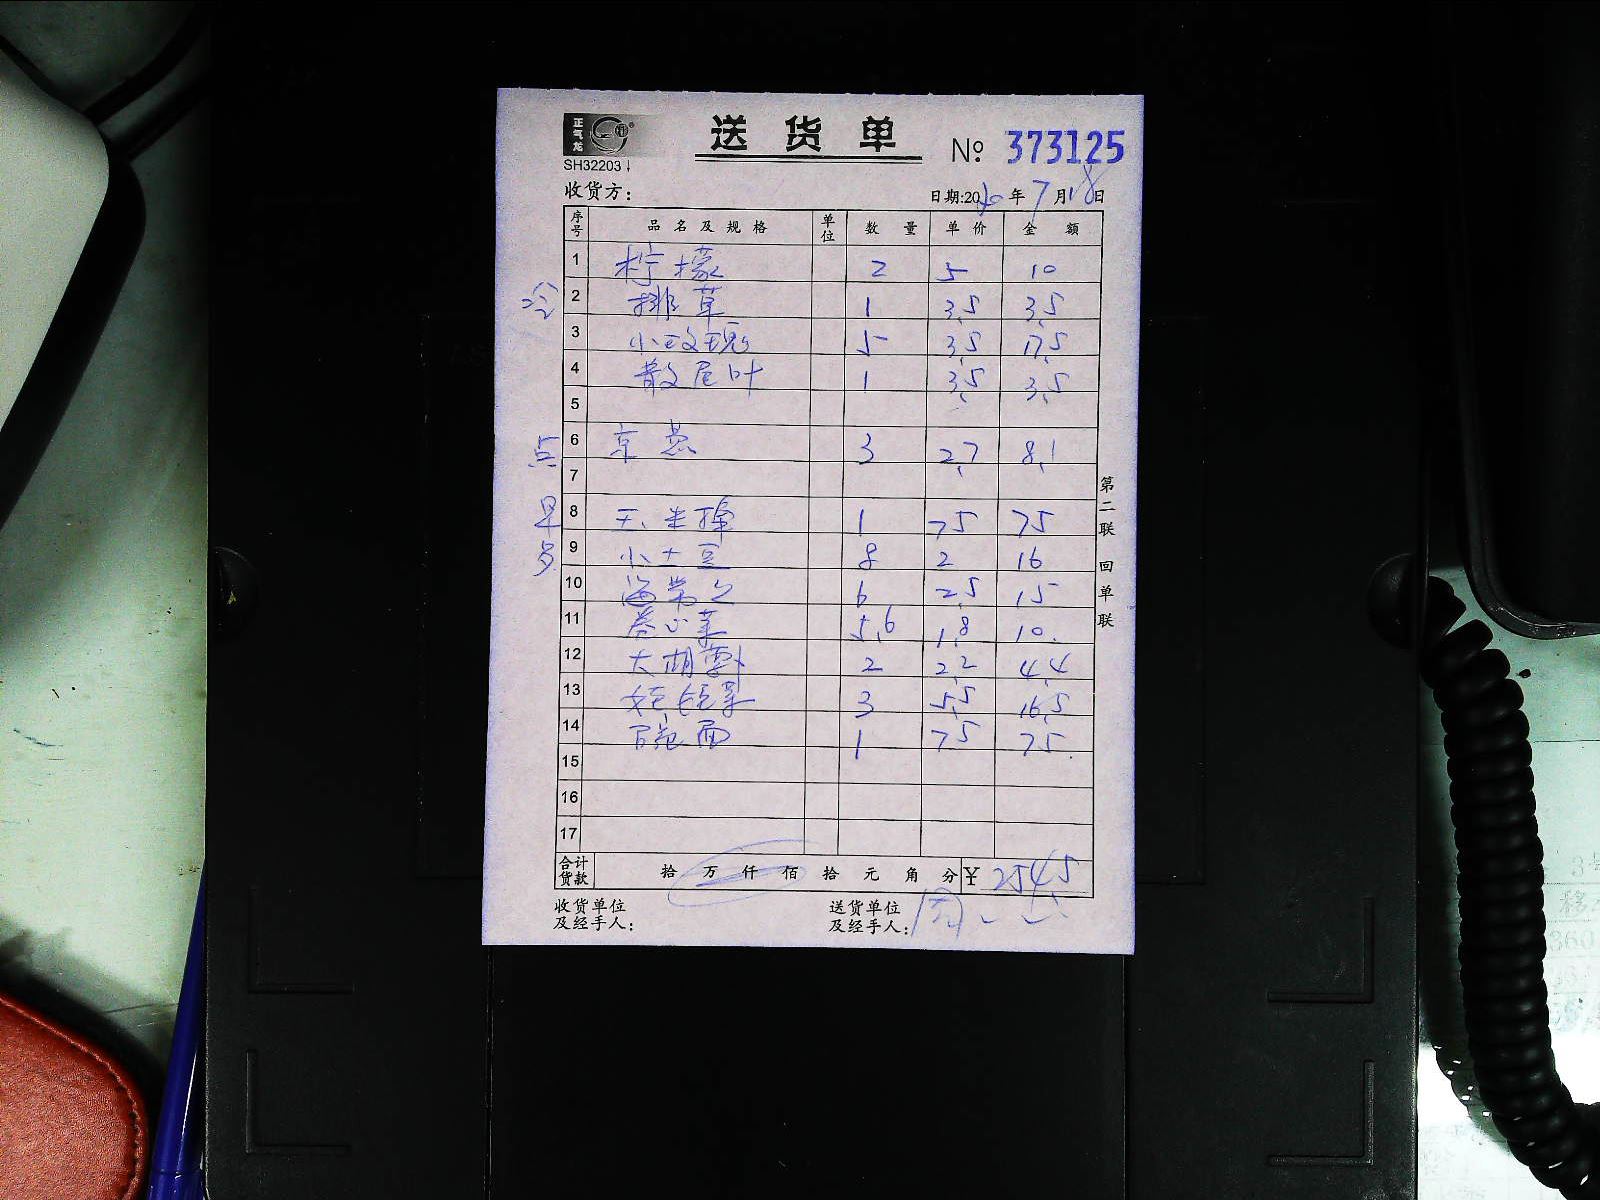 正气龙
送货单
SH32203
№ 373125
收货方：
日期:2020年7月18日
序号 品名及规格 单位 数量 单价 金额
冷
1 柠檬 2 5 10
2 排草 1 3.5 3.5
3 小玫瑰 5 3.5 17.5
4 散尾叶 1 3.5 3.5
5
点
6 京葱 3 2.7 8.1
7
早点
8 玉米 1 75 75
9 小土豆 8 2 16
10 海带 6 2.5 15
11 卷心菜 5.6 1.8 10.
12 大胡 2 2.2 4.4
13 娃娃菜 3 5.5 16.5
14 面 1 75 75.
15
16
17
合计货款 拾万仟佰拾元角分 ¥ 254.5
收货单位及经手人：
送货单位及经手人：
第二联 回单联